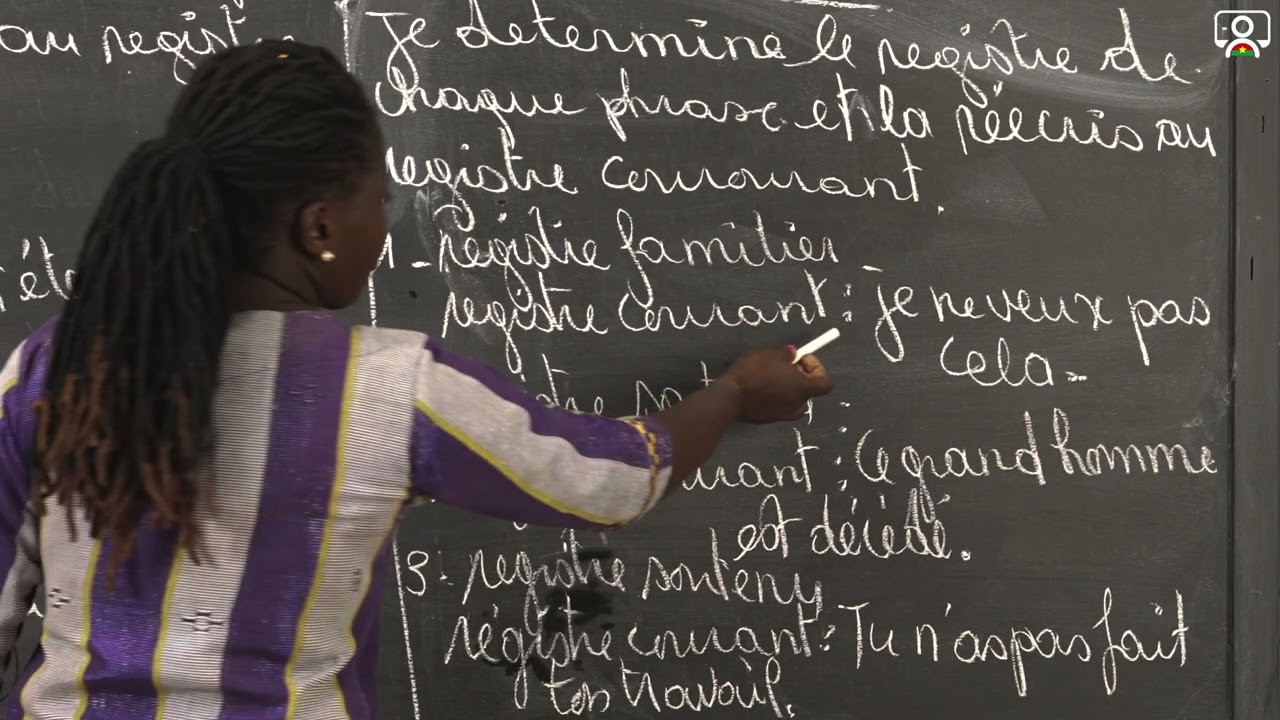 au registre
Je determine le registre de
chaque phrase et la réecris au
registre courourant.
1 - registre familier
registre courant : je ne veux pas
cela.
courant : Ce grand homme
est décédé.
3 - registre souteny
régistre courant : Tu n'as pas fait
ton travail.
été